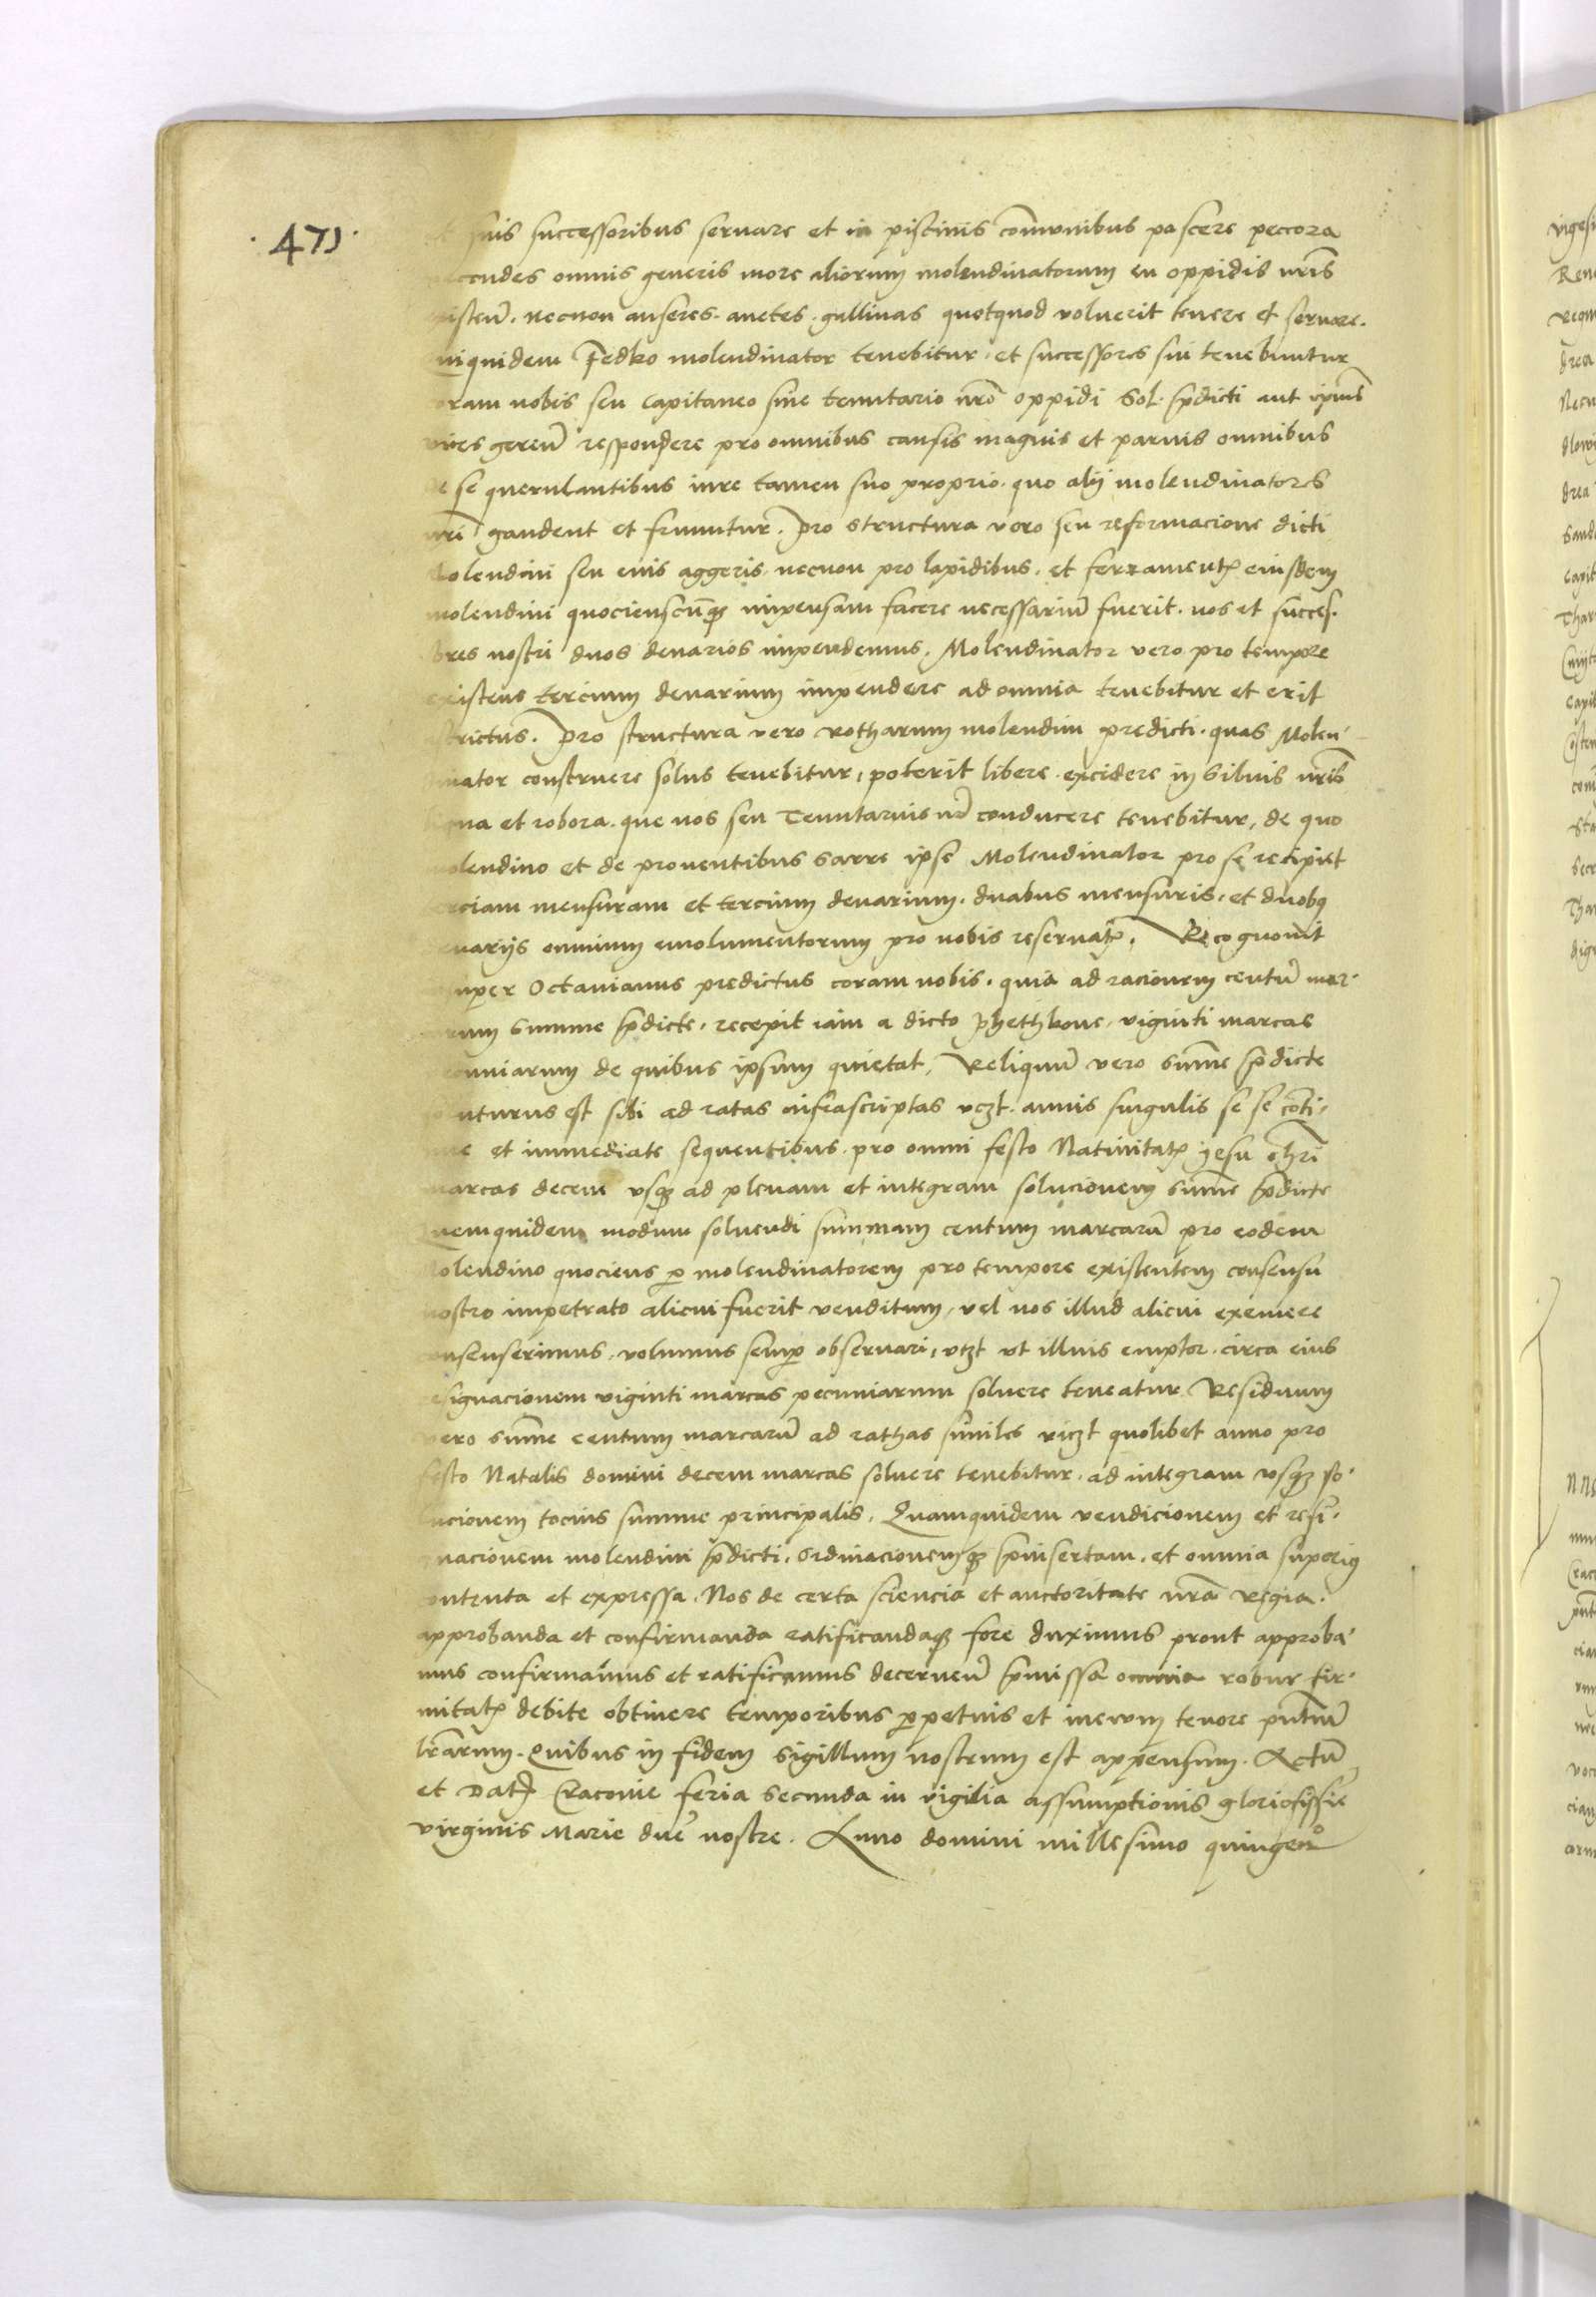 · 471 ·
suis successoribus seruare et in piscinis com̄unibus pascere peccora
pecudes omnis generis more aliorum molendinatorum en oppidis nr̄is
existen̄. necnon anseres. anetes. gullinas quotquod voluerit tenere et seruare.
Quiquidem Fedko molendinator tenebitur. et successores sui tenebuntur
coram nobis seu capitaneo siue tenutario nr̄o oppidi Sol. p̄dicti aut ip̄ius
vices geren̄ respondere pro omnibus causis magnis et paruis omnibus
de se querulantibus iure tamen suo proprio. quo alij molendinatores
nr̄i gaudent et fruuntur. Pro structura vero seu reformacione dicti
Molendini seu eius aggeris. necnon pro lapidibus. et ferramentꝭ eiusdem
molendini quociensc̄unqꝫ impensam facere necessariū fuerit. nos et succes-
sores nostri duos denarios impendemus. Molendinator vero pro tempore
existens tercium denarium impendere ad omnia tenebitur et erit
astrictus. Pro structura vero rotharum molendini predicti. quas Molen-
dinator construere solus tenebitur, poterit libere excidere in siluis nr̄is
ligna et robora. que nos seu Tenutarius nr̄ conducere tenebitur, de quo
molendino et de prouentibus sarre ipse Molendinator pro se recipiet
terciam mensuram et tercium denarium. duabus mensuris. et duobꝰ
denarijs omnium emolumentorum pro nobis reseruatꝭ. Recognouit
insuper Octauianus predictus coram nobis. quia ad racionem centū mar-
carum summe p̄dicte. recepit iam a dicto Phethkone. viginti marcas
pecuniarum de quibus ipsum quietat, Reliquū vero sum̄e p̄dicte
soluturus est sibi ad ratas infrascriptas vcꝫt. annis singulis se se con̄ti-
nue et immediate sequentibus. pro omni festo Natiuitatꝭ Jesu chr̄i
marcas decem vsqꝫ ad plenam et integram solucionem sum̄e p̄dicte
Quemquidem modum soluendi summam centum marcarū pro eodem
Molendino quociens ꝑ molendinatorem pro tempore existentem consensu
nostro impetrato alicui fuerit venditum, vel nos illud alicui exemere
consenserimus, volumus semꝑ obseruari, vcꝫt vt illius emptor. circa eius
resignacionem viginti marcas pecuniarum soluere teneatur Residuum
vero sum̄e centum marcarū ad rathas similes vicꝫt quolibet anno pro
festo Natalis domini decem marcas soluere tenebitur. ad integram vsqꝫ so-
lucionem tocius summe principalis. Quamquidem vendicionem et resi-
gnacionem molendini p̄dicti. ordinacionemqꝫ p̄insertam. et omnia superiꝰ
contenta et expressa. Nos de certa sciencia et auctoritate nr̄a Regia.
approbanda et confirmanda ratificandaqꝫ fore duximus prout approba-
mus confirmamus et ratificamus decernen̄ p̄missa omnia robur fir-
mitatꝭ debite obtinere temporibus ꝑpetuis et in ewm tenore pn̄tiū
lr̄arum. Quibus in fidem sigillum nostrum est appensum. Actū
et Datꝭ Cracouie feria secunda in vigilia assumptionis gloriosissīe
virginis Marie dn̄e nostre. Anno domini millesimo quingen̄o